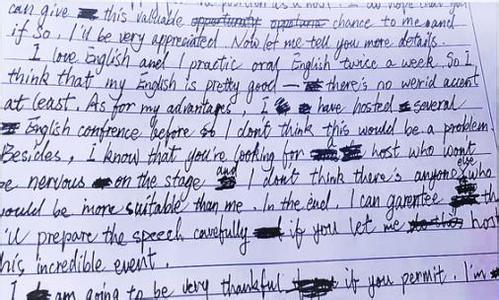 can give this valuable opportunity chance to me and
if so, I'll be very appreciated. Now let me tell you more details.
I love English and I practic oral English twice a week. So I
think that my English is pretty good — there's no werid accent
at least. As for my advantages, I have hosted several
English confrence before so I don't think this would be a problem
Besides, I know that you're looking for host who wont
be nervous on the stage and I don't think there's anyone else who
would be more suitable than me. In the end, I can garentee th
I'll prepare the speech carefully if you let me host
this incredible event.
I am going to be very thankful if you permit. I'm